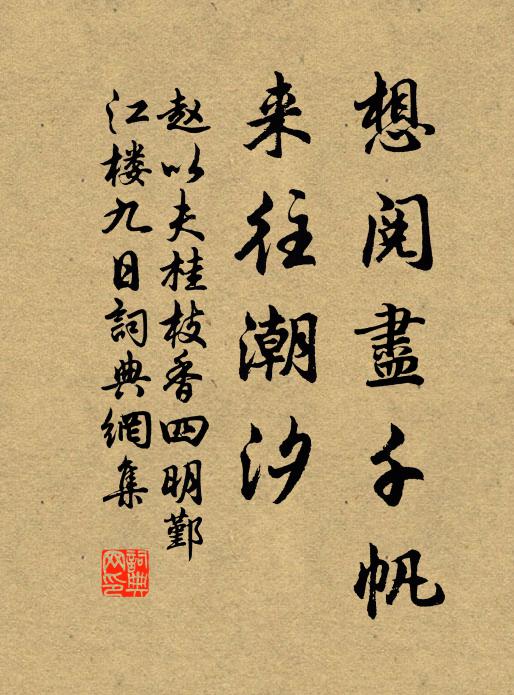 想阅盡千帆
来往潮汐
赵以夫桂枝香四明鄞
江楼九日詞典網集
詞典网印